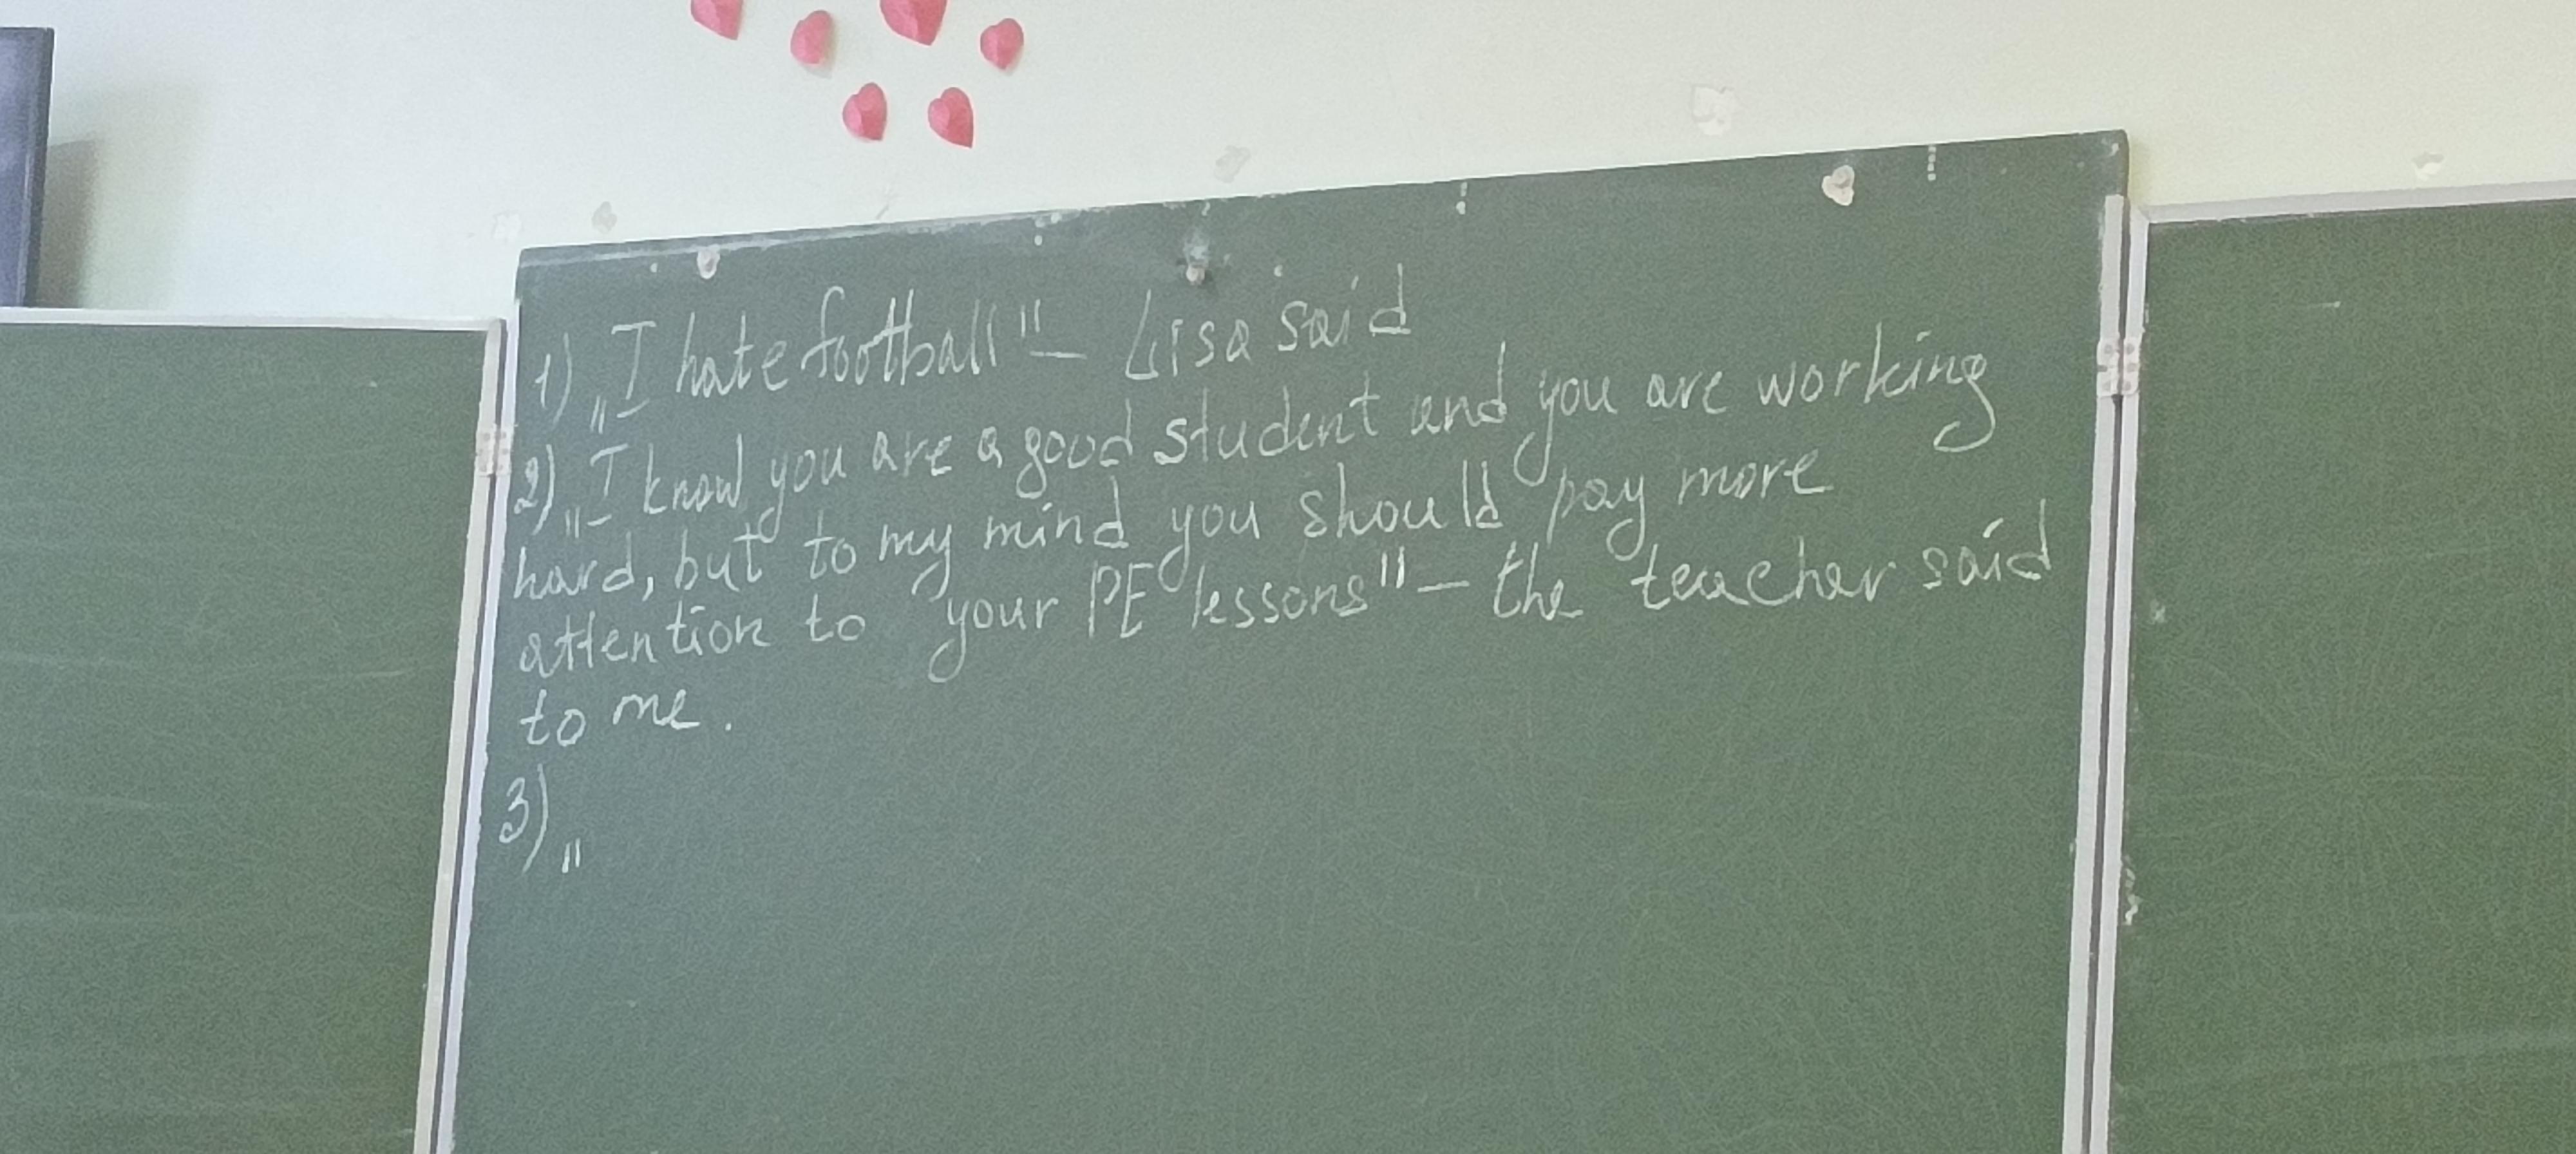 1) „I hate football" – Lisa said
2) „I know you are a good student and you are working
hard, but to my mind you should pay more
attention to your PE lessons" – the teacher said
to me.
3) „